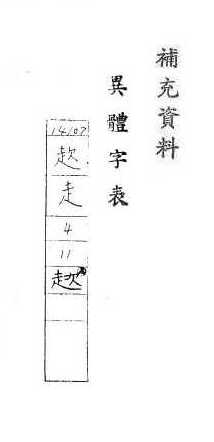 補充資料
異體字表
14107
趑
走
4
11